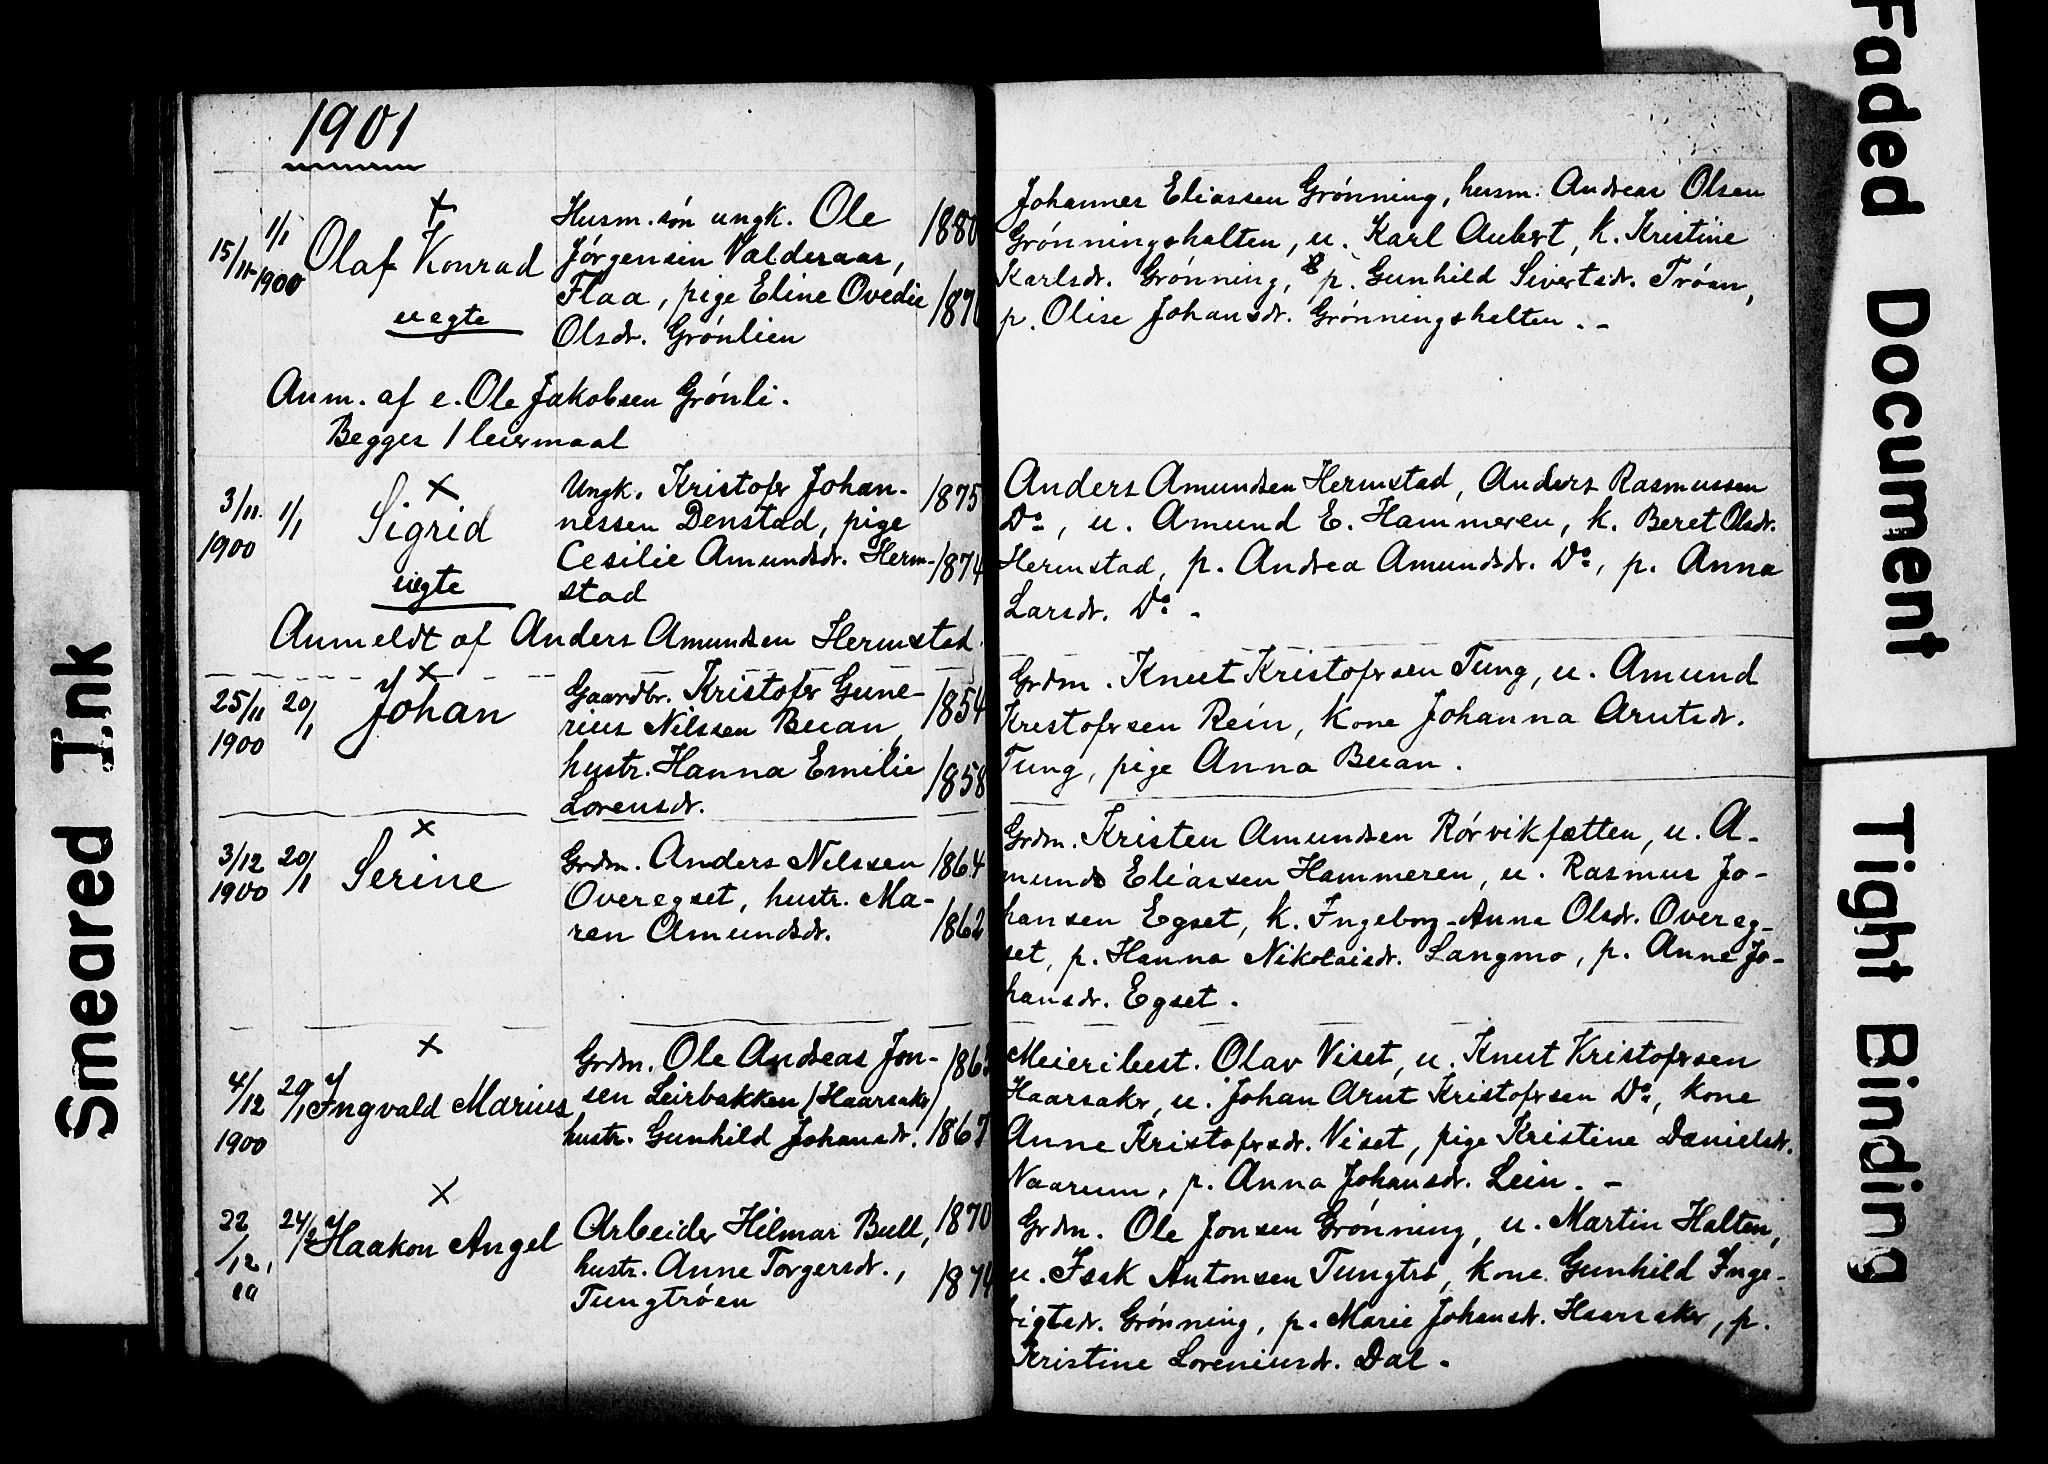 1901
15/11 1900
1/1
Olaf Konrad
uegte
Husm. søn ungk. Ole
Jørgensen Valderaas,
Flaa, pige Eline Ovedie
Olsdr. Grønlien
1880
187
Anm. af e. Ole Jakobsen Grønli.
Begges 1 leiermaal
Johannes Eliassen Grønning, husm. Andreas Olsen
Grønningshalten, u. Karl Aubert, k. Kristine
Karlsdr. Grønning, p. Gunhild Sivertsdr. Trøen,
p. Olise Johansdr. Grønningshalten. -
3/11 1900
1/1
Sigrid
uegte
Ungk. Kristofer Johan-
nessen Denstad, pige
Cesilie Amundsdr. Herm-
stad
1875
1874
Anmeldt af Anders Amundsen Hermstad.
Anders Amundsen Hermstad, Anders Rasmussen
Do, u. Amund E. Hammeren, k. Beret Olsdr.
Hermstad, p. Andrea Amundsdr. Do, p. Anna
Larsdr. Do. -
25/11 1900
20/1
Johan
Gaardbr. Kristofer Gune-
rius Nilssen Buan,
hustr. Hanna Emilie
Lorensdr.
1854
1858
Grdm. Knut Kristofersen Tung, u. Amund
Krestofersen Rein, Kone Johanna Arntsdr.
Tung, pige Anna Buan.
3/12 1900
20/1
Serine
Grdm. Anders Nilssen
Overegset, hustr. Ma-
ren Amundsdr.
1864
1862
Grdm. Kristen Amundsen Rørvikfætten, u. A-
mund Eliassen Hammeren, u. Rasmus Jo-
hansen Egset, k. Ingeborg-Anna Olsdr. Overeg-
set, p. Hanna Nikolaisdr. Langmo, p. Anne Jo-
hansdr. Egset.
4/12 1900
20/1
Ingvald Marius
Grdm. Ole Andreas Jon-
sen Leirbakken (Haarsaker)
hustr. Gunhild Johansdr.
186
1867
Meieribest. Olav Viset, u. Knut Kristofersen
Haarsaker, u. Johan Arnt Kristofersen Do, Kone
Anne Kristofersdr. Viset, pige Kristine Danielsdr.
Naarum, p. Anna Johansdr. Lein. -
22/12, 00
24/2
Haakon Angel
Arbeider Hilmar Bull,
hustr. Anne Torgersdr.,
Tungtrøen
1870
1874
Grdm. Ole Jonsen Grønning, u. Martin Halten,
u. Isak Antonsen Tungtrø, kone Gunhild Inge-
brigtsdr. Grønning, p. Marie Johansdr. Haarsaker, p.
Kristine Loreniusdr. Dal.
Smeared Ink
Faded Document
Tight Binding